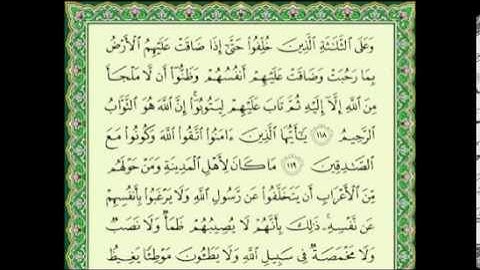 وَعَلَى ٱلثَّلَٰثَةِ ٱلَّذِينَ خُلِّفُوا۟ حَتَّىٰٓ إِذَا ضَاقَتْ عَلَيْهِمُ ٱلْأَرْضُ
بِمَا رَحُبَتْ وَضَاقَتْ عَلَيْهِمْ أَنفُسُهُمْ وَظَنُّوٓا۟ أَن لَّا مَلْجَأَ
مِنَ ٱللَّهِ إِلَّآ إِلَيْهِ ثُمَّ تَابَ عَلَيْهِمْ لِيَتُوبُوٓا۟ ۚ إِنَّ ٱللَّهَ هُوَ ٱلتَّوَّابُ
ٱلرَّحِيمُ ١١٨ يَٰٓأَيُّهَا ٱلَّذِينَ ءَامَنُوا۟ ٱتَّقُوا۟ ٱللَّهَ وَكُونُوا۟ مَعَ
ٱلصَّٰدِقِينَ ١١٩ مَا كَانَ لِأَهْلِ ٱلْمَدِينَةِ وَمَنْ حَوْلَهُم
مِّنَ ٱلْأَعْرَابِ أَن يَتَخَلَّفُوا۟ عَن رَّسُولِ ٱللَّهِ وَلَا يَرْغَبُوا۟ بِأَنفُسِهِمْ
عَن نَّفْسِهِۦ ۚ ذَٰلِكَ بِأَنَّهُمْ لَا يُصِيبُهُمْ ظَمَأٌ وَلَا نَصَبٌ
وَلَا مَخْمَصَةٌ فِى سَبِيلِ ٱللَّهِ وَلَا يَطَـُٔونَ مَوْطِئًا يَغِيظُ